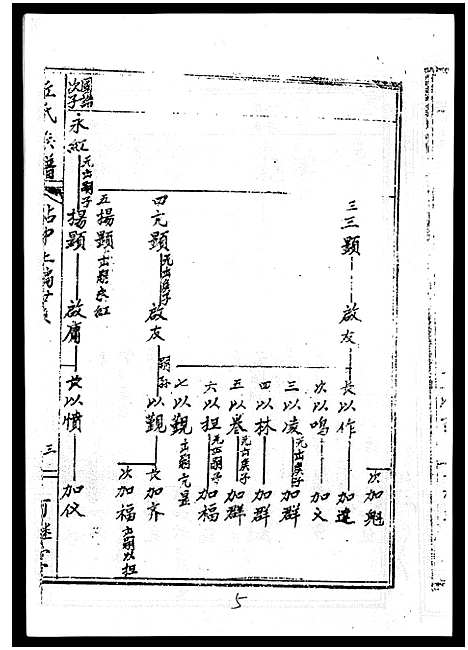 次加魁
三三顯
啟友
長以作
加達
次以鳴
加文
三以凌
元出房子
加群
四以林
加群
五以卷
元六房子
加群
六以担
元五嗣子
加福
七以觀
出嗣亢显
四亢顯
元出房子
啟友
嗣子
以觀
長加齊
次加福出嗣以担
五揚顯出嗣永紅
次子永紅
元六嗣子
揚顯
啟庸
長以憤
加仪
丘氏族譜
三
5